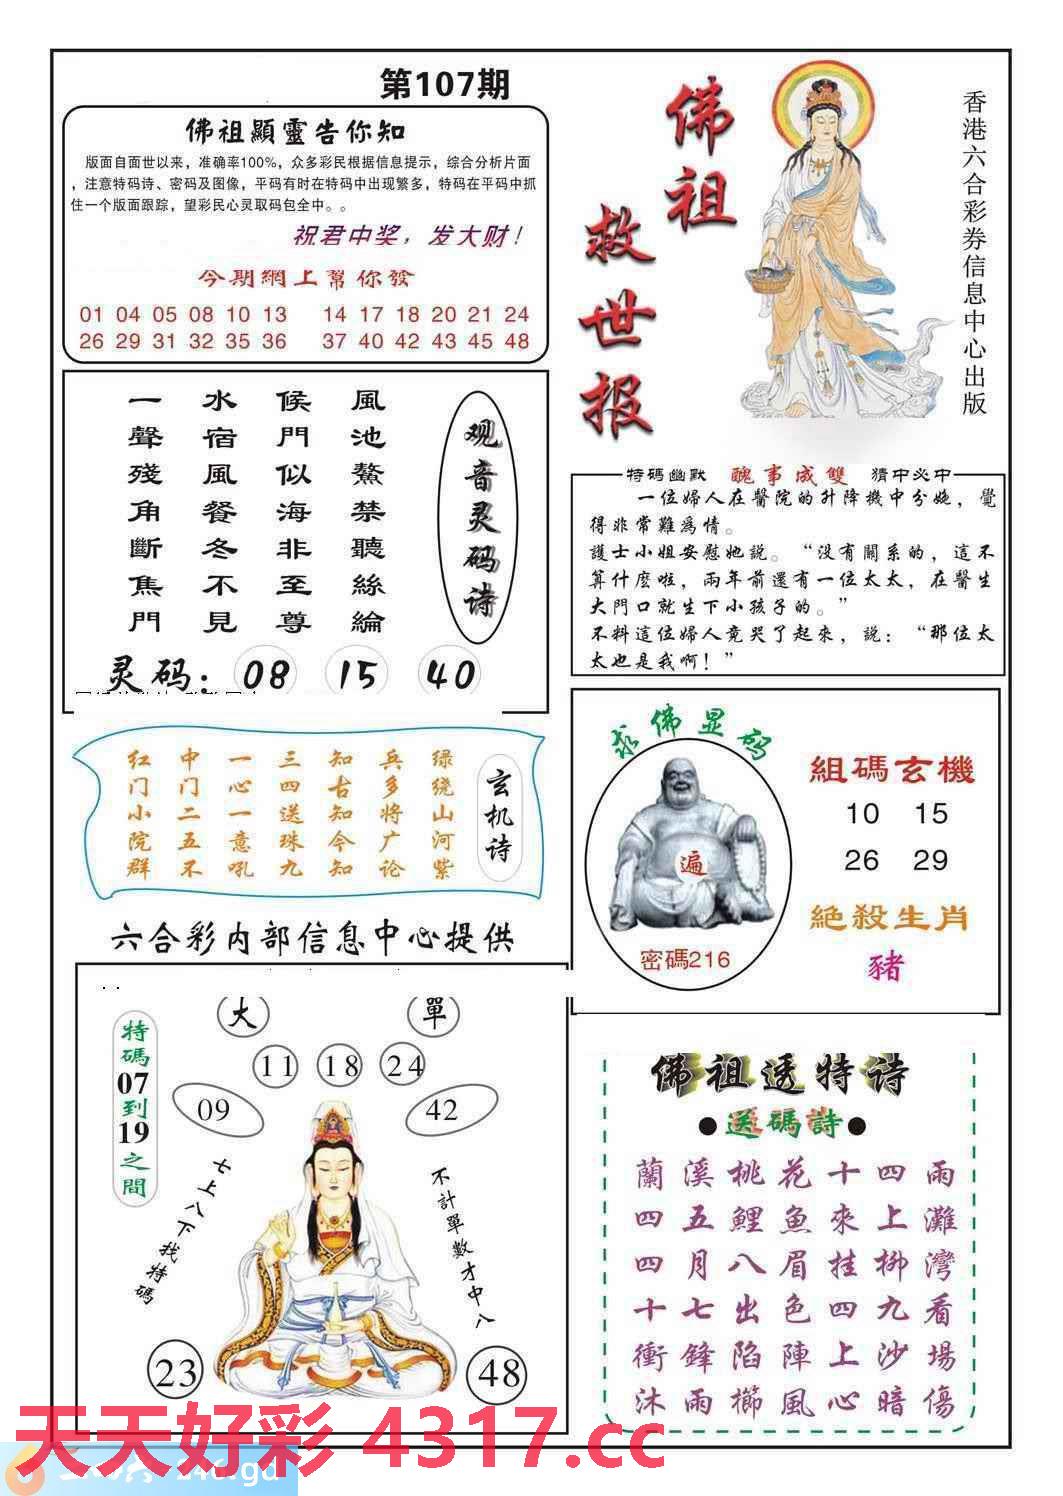 第107期
佛祖顯靈告你知
版面自面世以来，准确率100%，众多彩民根据信息提示，综合分析片面
，注意特码诗、密码及图像，平码有时在特码中出现繁多，特码在平码中抓
住一个版面跟踪，望彩民心灵取码包全中。。
祝君中奖，发大财！
今期網上幫你發
01 04 05 08 10 13 14 17 18 20 21 24
26 29 31 32 35 36 37 40 42 43 45 48
佛祖救世报
香港六合彩券信息中心出版
观音灵码诗
風池鰲禁聽絲綸
候門似海非至尊
水宿風餐冬不見
一聲殘角斷焦門
灵码：08 15 40
特碼幽默 醜事成雙 猜中必中
一位婦人在醫院的升降機中分娩，覺
得非常難爲情。
護士小姐安慰她説。“没有關系的，這不
算什麽啦，兩年前還有一位太太，在醫生
大門口就生下小孩子的。”
不料這位婦人竟哭了起來，説：“那位太
太也是我啊！”
玄机诗
绿绕山河紫
兵多将广论
知古知今知
三四送珠九
一心一意吼
中门二五不
红门小院群
求佛显码
遍
密碼216
組碼玄機
10 15
26 29
絕殺生肖
豬
六合彩内部信息中心提供
大 單
特碼07到19之間
11 18 24
09 42
七上八下找特碼
不計單數才中八
23 48
佛祖透特诗
●送碼詩●
蘭溪桃花十四雨
四五鯉魚來上灘
四月八眉挂柳灣
十七出色四九看
衝鋒陷陣上沙場
沐雨櫛風心暗傷
天天好彩 4317.cc
246.gd